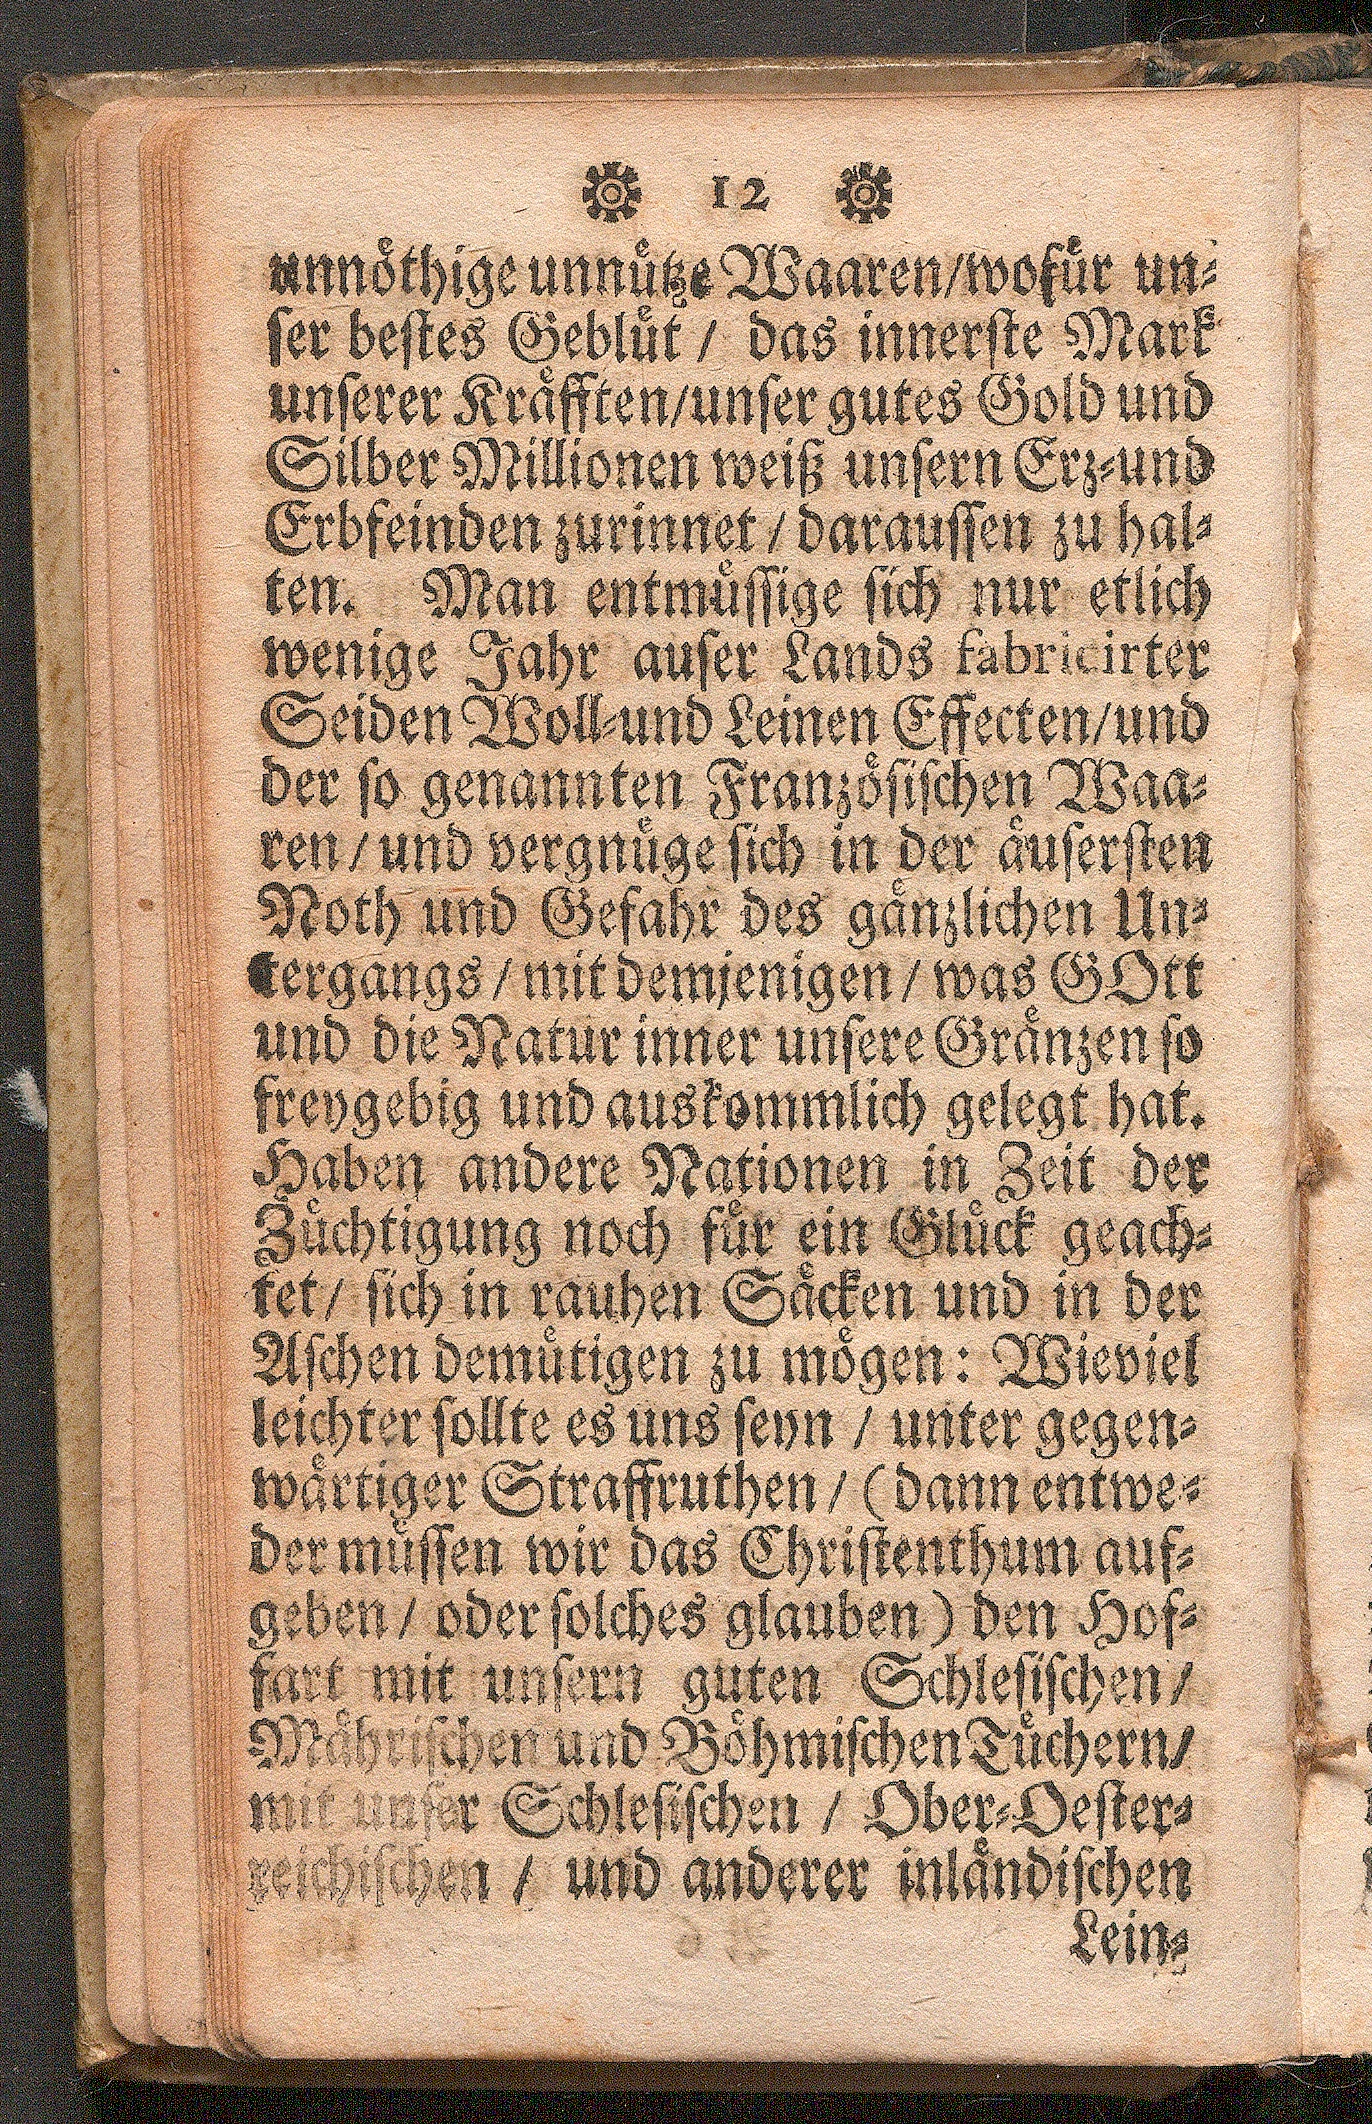 12
unnöthige unnütze Waaren/wofür un-
ser bestes Geblüt / das innerste Mark
unserer Kräfften/unser gutes Gold und
Silber Millionen weiß unsern Erz-und
Erbfeinden zurinnet / daraussen zu hal-
ten. Man entmüssige sich nur etlich
wenige Jahr auser Lands fabricirter
Seiden Woll-und Leinen Effecten/und
der so genannten Französischen Waa-
ren / und vergnüge sich in der äusersten
Noth und Gefahr des gänzlichen Un-
tergangs / mit demjenigen / was GOtt
und die Natur inner unsere Gränzen so
freygebig und auskommlich gelegt hat.
Haben andere Nationen in Zeit der
Züchtigung noch für ein Glück geach-
tet / sich in rauhen Säcken und in der
Aschen demütigen zu mögen: Wieviel
leichter sollte es uns seyn / unter gegen-
wärtiger Straffruthen / (dann entwe-
der müssen wir das Christenthum auf-
geben / oder solches glauben) den Hof-
fart mit unsern guten Schlesischen /
Mährischen und Böhmischen Tüchern/
mit unser Schlesischen / Ober-Oester-
reichischen / und anderer inländischen
Lein-